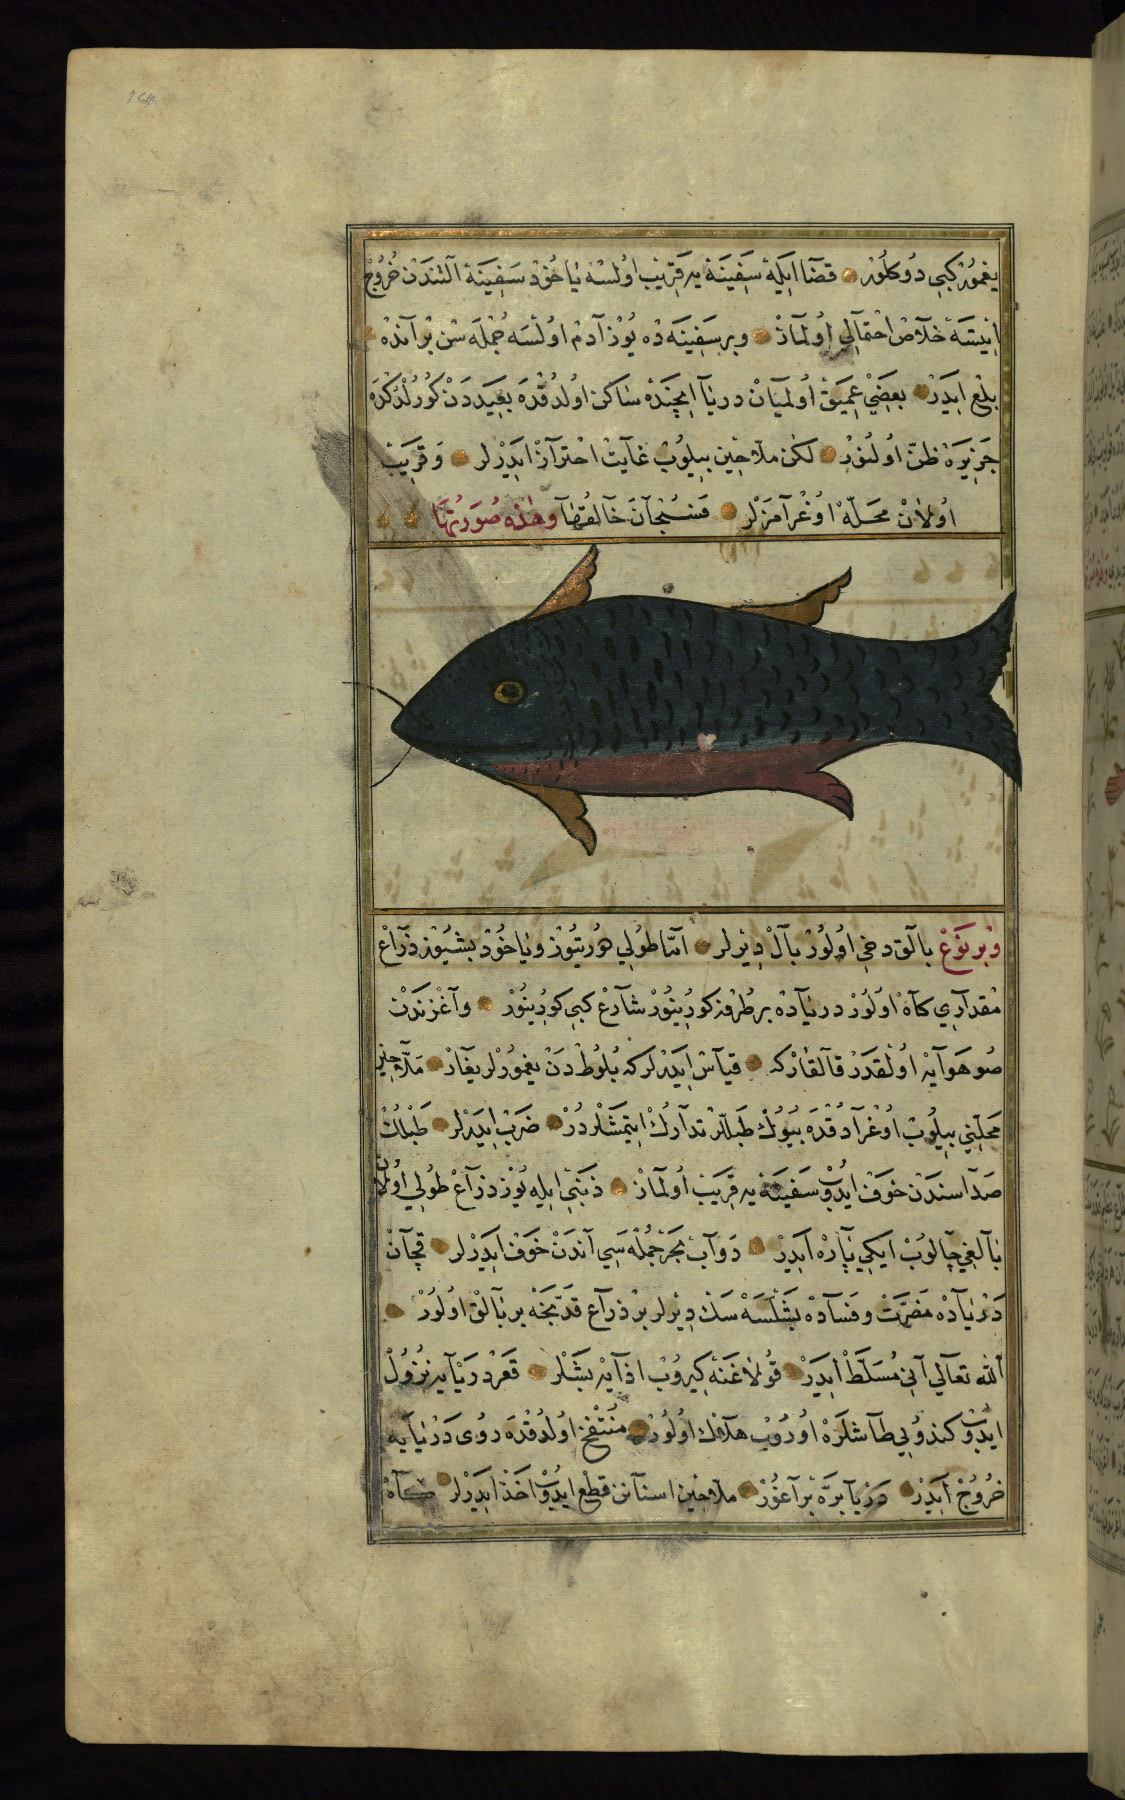 يغمور كبي دوكلور قضا ايله سفينه يه قريب اولسه ياخود سفينه التندن خروج
ايتسه خلاص احتمالي اولماز وبر سفينه ده يوز آدم اولسه جمله سن بر آنده
بلع ايدر بعضي عميق اولميان دريا ايچنده ساكن اولدقده بعيددن كورلدكده
جزيره ظن اولنور لكن ملاحين بيلوب غايت احتراز ايدرلر وقريب
اولان محله اوغرامزلر فسبحان خالقها وهذه صورتها
وبر نوع بالق دخي اولور بال ديرلر اما طولي دورتيوز وياخود بشيوز ذراع
مقداري كاه اولور درياده بر طرفه كورينور شارع كبي كورينور وآغزندن
صو هوايه اولقدر قالقار كه قياس ايدرلر كه بلوطدن يغمورلر يغار ملاحين
محلني بيلوب اوغرادقده بيوك طبللر تدارك ايتمشلردر ضرب ايدرلر طبلك
صداسندن خوف ايدوب سفينه يه قريب اولماز ذنبي ايله يوز ذراع طولي اولان
بالغي چالوب ايكي پاره ايدر دواب بحر جمله سي آندن خوف ايدرلر قچان
درياده مضرت وفساده بشلسه سك ديرلر بر ذراع قدنجه بر بالق اولور
الله تعالي آني مسلط ايدر قولاغنه كيروب اذايه بشلر قعر دريايه نزول
ايدوب كندوبي طاشلره اوروب هلاك اولور منتفخ اولدقده روى دريايه
خروج ايدر دريا بره براغور ملاحين اسنانن قطع ايدوب اخذ ايدرلر كاه